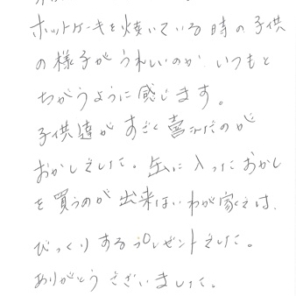 ホットケーキを焼いている時の子供
の様子がうれしいのか、いつもと
ちがうように感じます。
子供達がすごく喜んだのが
おかしでした。缶に入ったおかし
を買うのが出来ないわが家では、
びっくりするプレゼントでした。
ありがとうございました。